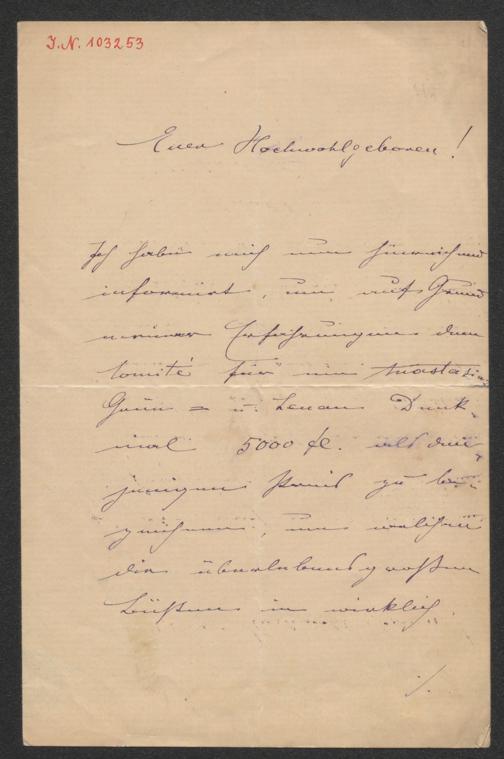 I.N. 103253
Euer Hochwohlgeboren!
Ich habe mich nun hinreichend
informirt, um auf Grund
meiner Erfahrungen dem
Comité für ein Anastasius
Grün = u. Lenau Denk-
mal 5000 fl. als den-
jenigen Preis zu be-
zeichnen, um welchen
die überlebensgroßen
Büsten in wirklich
./.